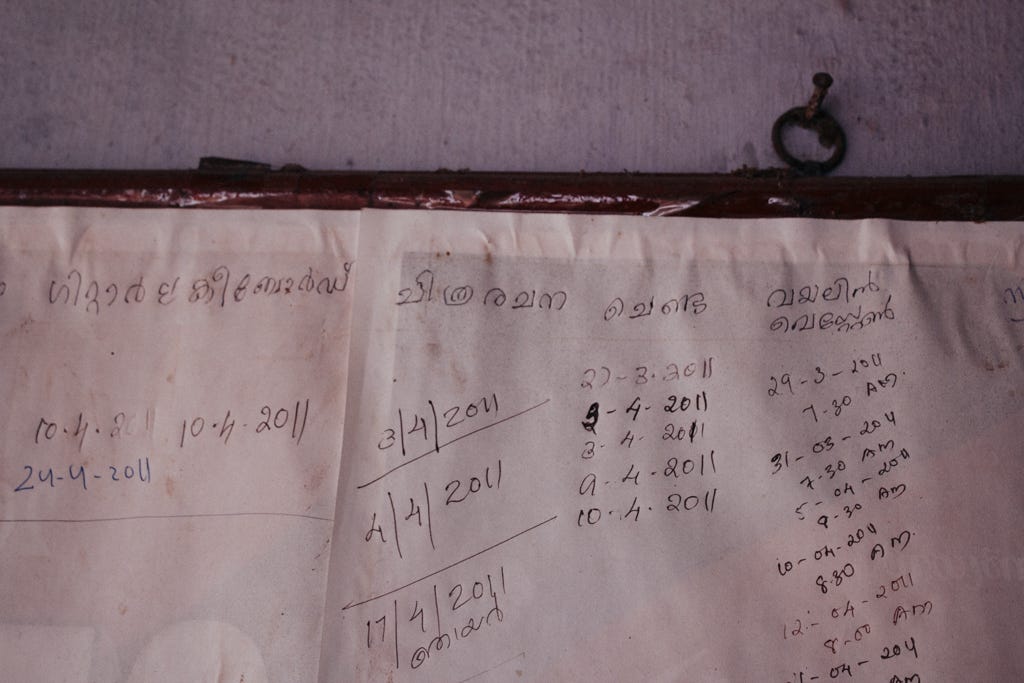 ഗിറ്റാർ കീബോർഡ്
10.4.2011 10.4.2011
24-4-2011
ചിത്രരചന
3/4/2011
4/4/2011
17/4/2011
ഞായർ
ചെണ്ട
27-3-2011
3-4-2011
3-4-2011
9-4-2011
10.4.2011
വയലിൻ
വെസ്റ്റേൺ
29-3-2011
7-30 AM.
31-03-2011
7-30 AM
5-04-2011
9-30 AM
10-04-2011
8.30 AM.
12-04-2011
8-00 AM
-04-2011
AM